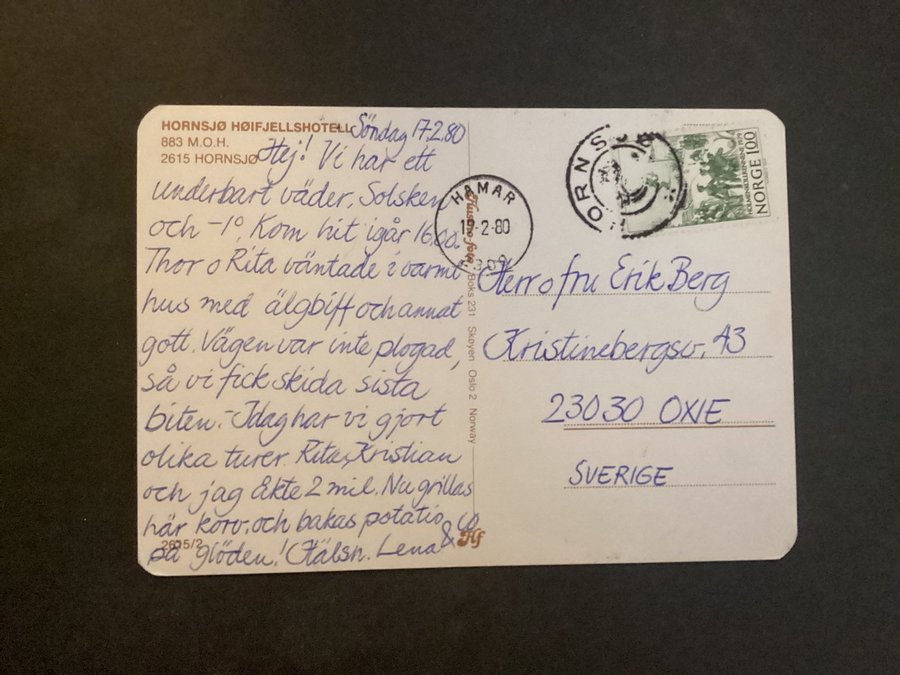 HORNSJØ HØIFJELLSHOTELL
883 M.O.H.
2615 HORNSJØ
Söndag 17.2.80
Hej! Vi har ett
underbart väder. Solsken
och -1°. Kom hit igår 16.00.
Thor o Rita väntade i varmt
hus med älgbiff och annat
gott. Vägen var inte plogad,
så vi fick skida sista
biten. - Idag har vi gjort
olika turer. Rita, Kristian
och jag åkte 2 mil. Nu grillas
här korv, och bakas potatis
på glöden! Hälsn. Lena & Co
2615/2
HAMAR
19-2-80
HORNSJØ
NORGE 100
Boks 231 Skøyen Oslo 2 Norway
Herr o fru Erik Berg
Kristinebergsv. A3
23030 OXIE
SVERIGE